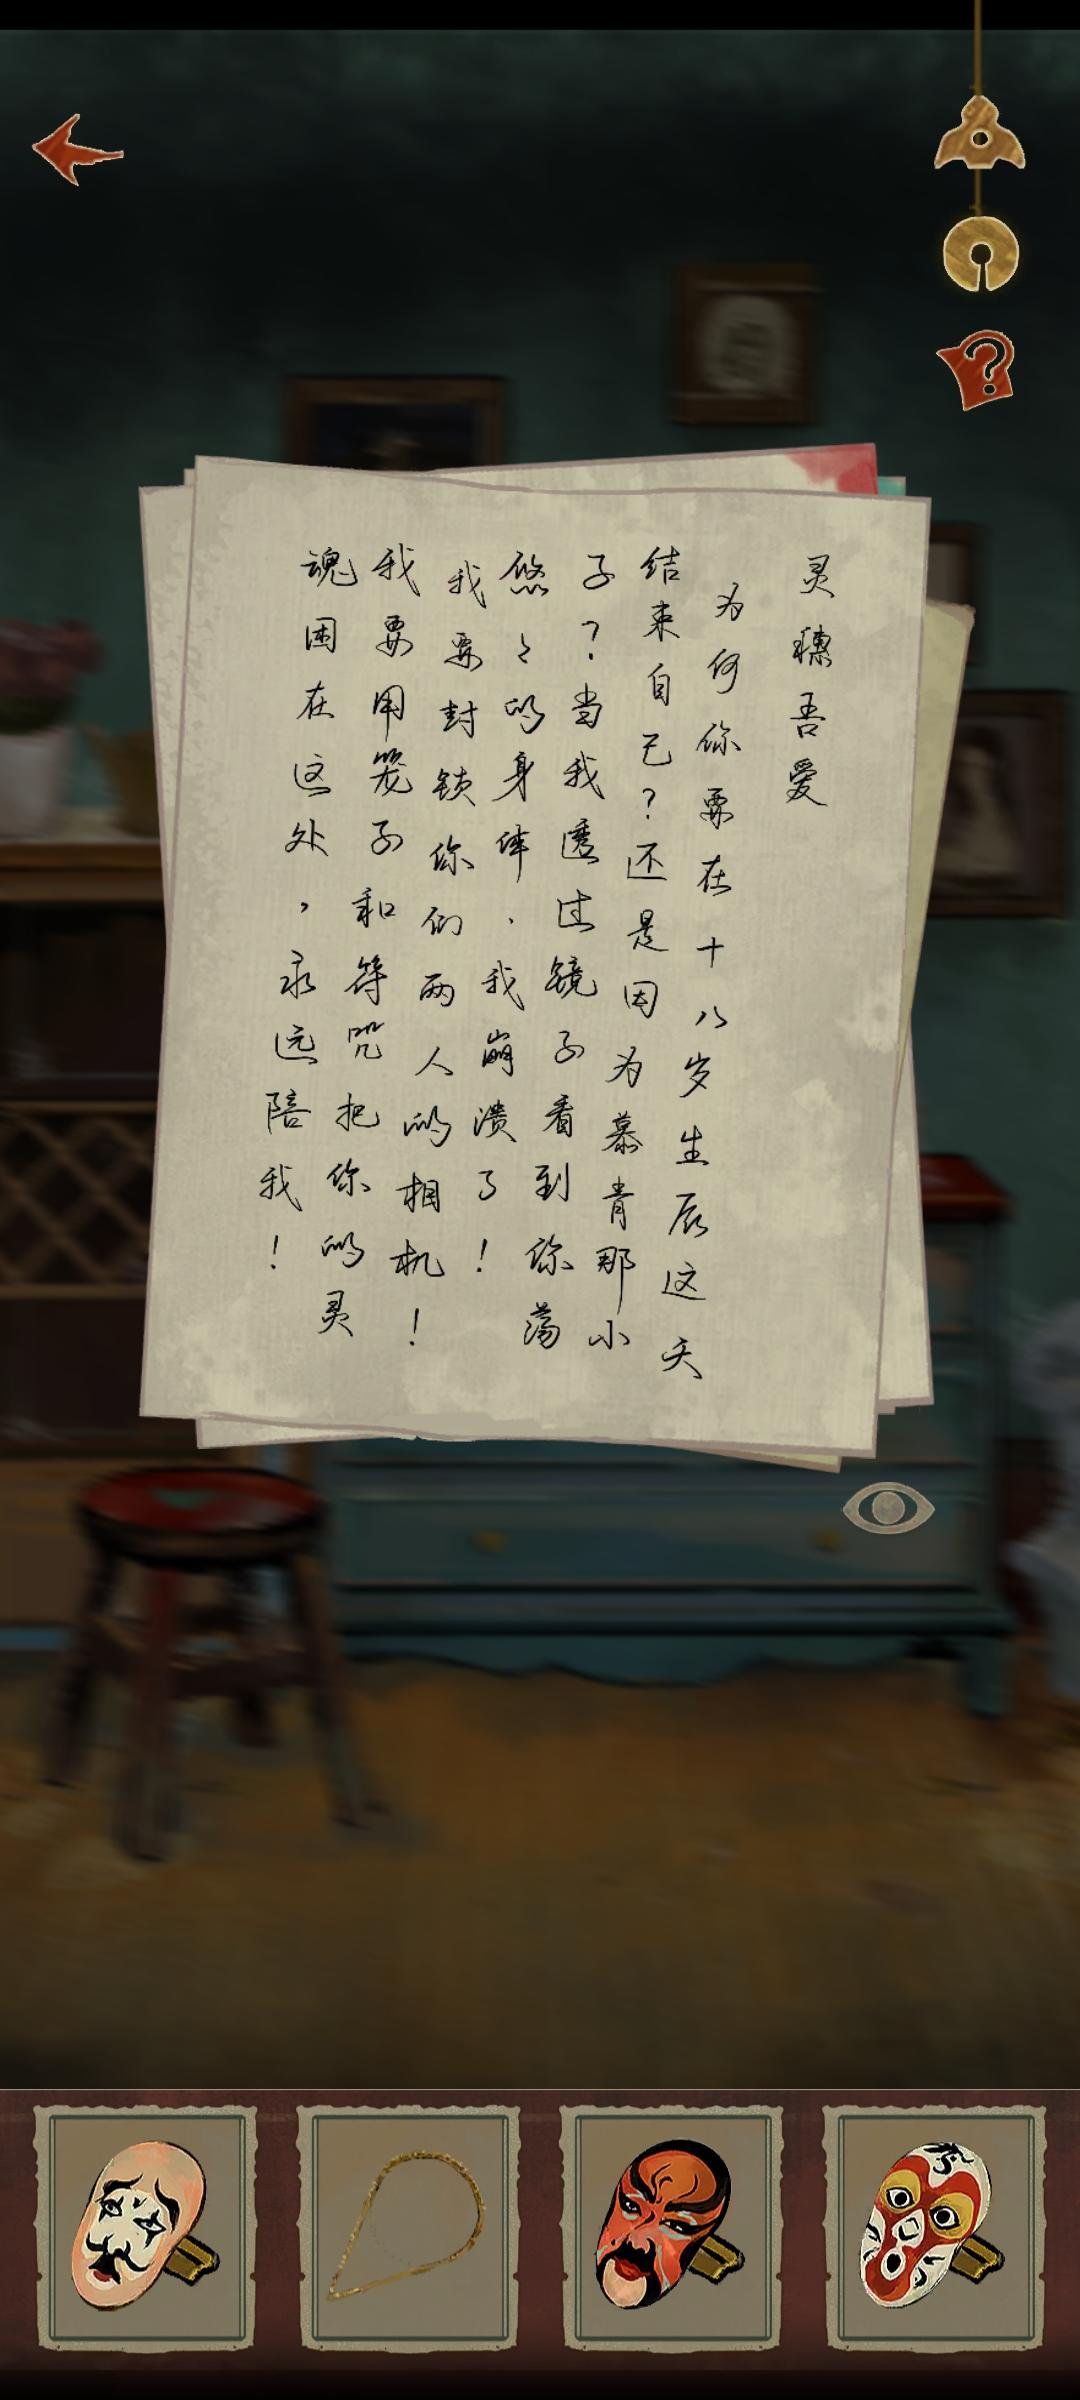 灵穗吾爱
为何你要在十八岁生辰这天
结束自己？还是因为慕青那小
子？当我透过镜子看到你荡
悠々的身体．我崩溃了！
我要封锁你们两人的相机！
我要用笼子和符咒把你的灵
魂困在这处，永远陪我！